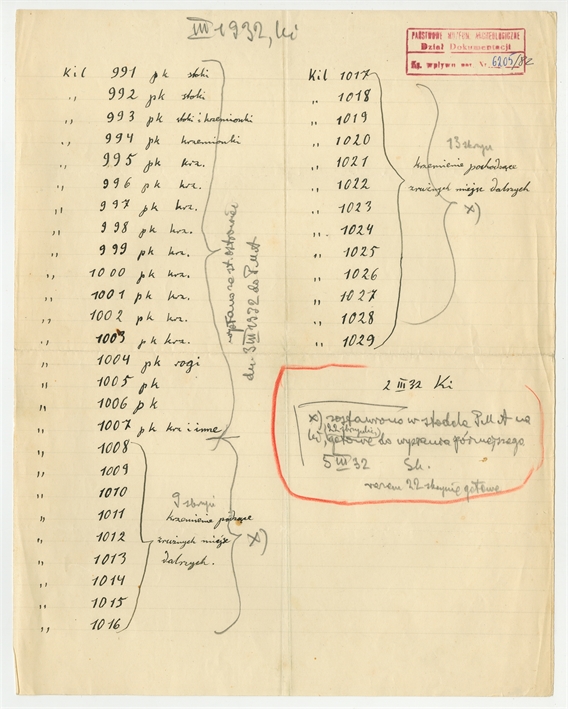 III 1932, Ki
PAŃSTWOWE MUZEUM ARCHEOLOGICZNE
Dział Dokumentacji
Kg. wpływu nr. 6205/82
Kil 991 pk stoki
„ 992 pk stoki
„ 993 pk stoki i krzemionki
„ 994 pk krzemionki
„ 995 pk krz.
„ 996 pk krz.
„ 997 pk krz.
„ 998 pk krz.
„ 999 pk krz.
„ 1000 pk krz.
„ 1001 pk krz.
„ 1002 pk krz.
„ 1003 pk krz.
„ 1004 pk rogi
„ 1005 pk
„ 1006 pk
„ 1007 pk krz i inne
„ 1008
„ 1009
„ 1010
„ 1011
„ 1012
„ 1013
„ 1014
„ 1015
„ 1016
dn. 3 III 1932 do P.M.A
9 skrzyń
krzemienie
z różnych miejsc
dalszych.
x)
Kil 1017
„ 1018
„ 1019
„ 1020
„ 1021
„ 1022
„ 1023
„ 1024
„ 1025
„ 1026
„ 1027
„ 1028
„ 1029
13 skrzyń
krzemienie pochodzące
z różnych miejsc dalszych
x)
2 III 32 Ki
x) zostawiono w stodole P.M.A na
Ki, gotowe do wysłania późniejszego
5 III 32 Sk.
razem 22 skrzynie gotowe